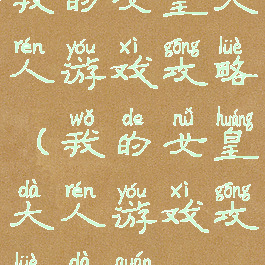 我的女皇大
rén yóu xì gōng lüè
人游戏攻略
wǒ de nǚ huáng
(我的女皇
dà rén yóu xì gōng
大人游戏攻
lüè dà quán